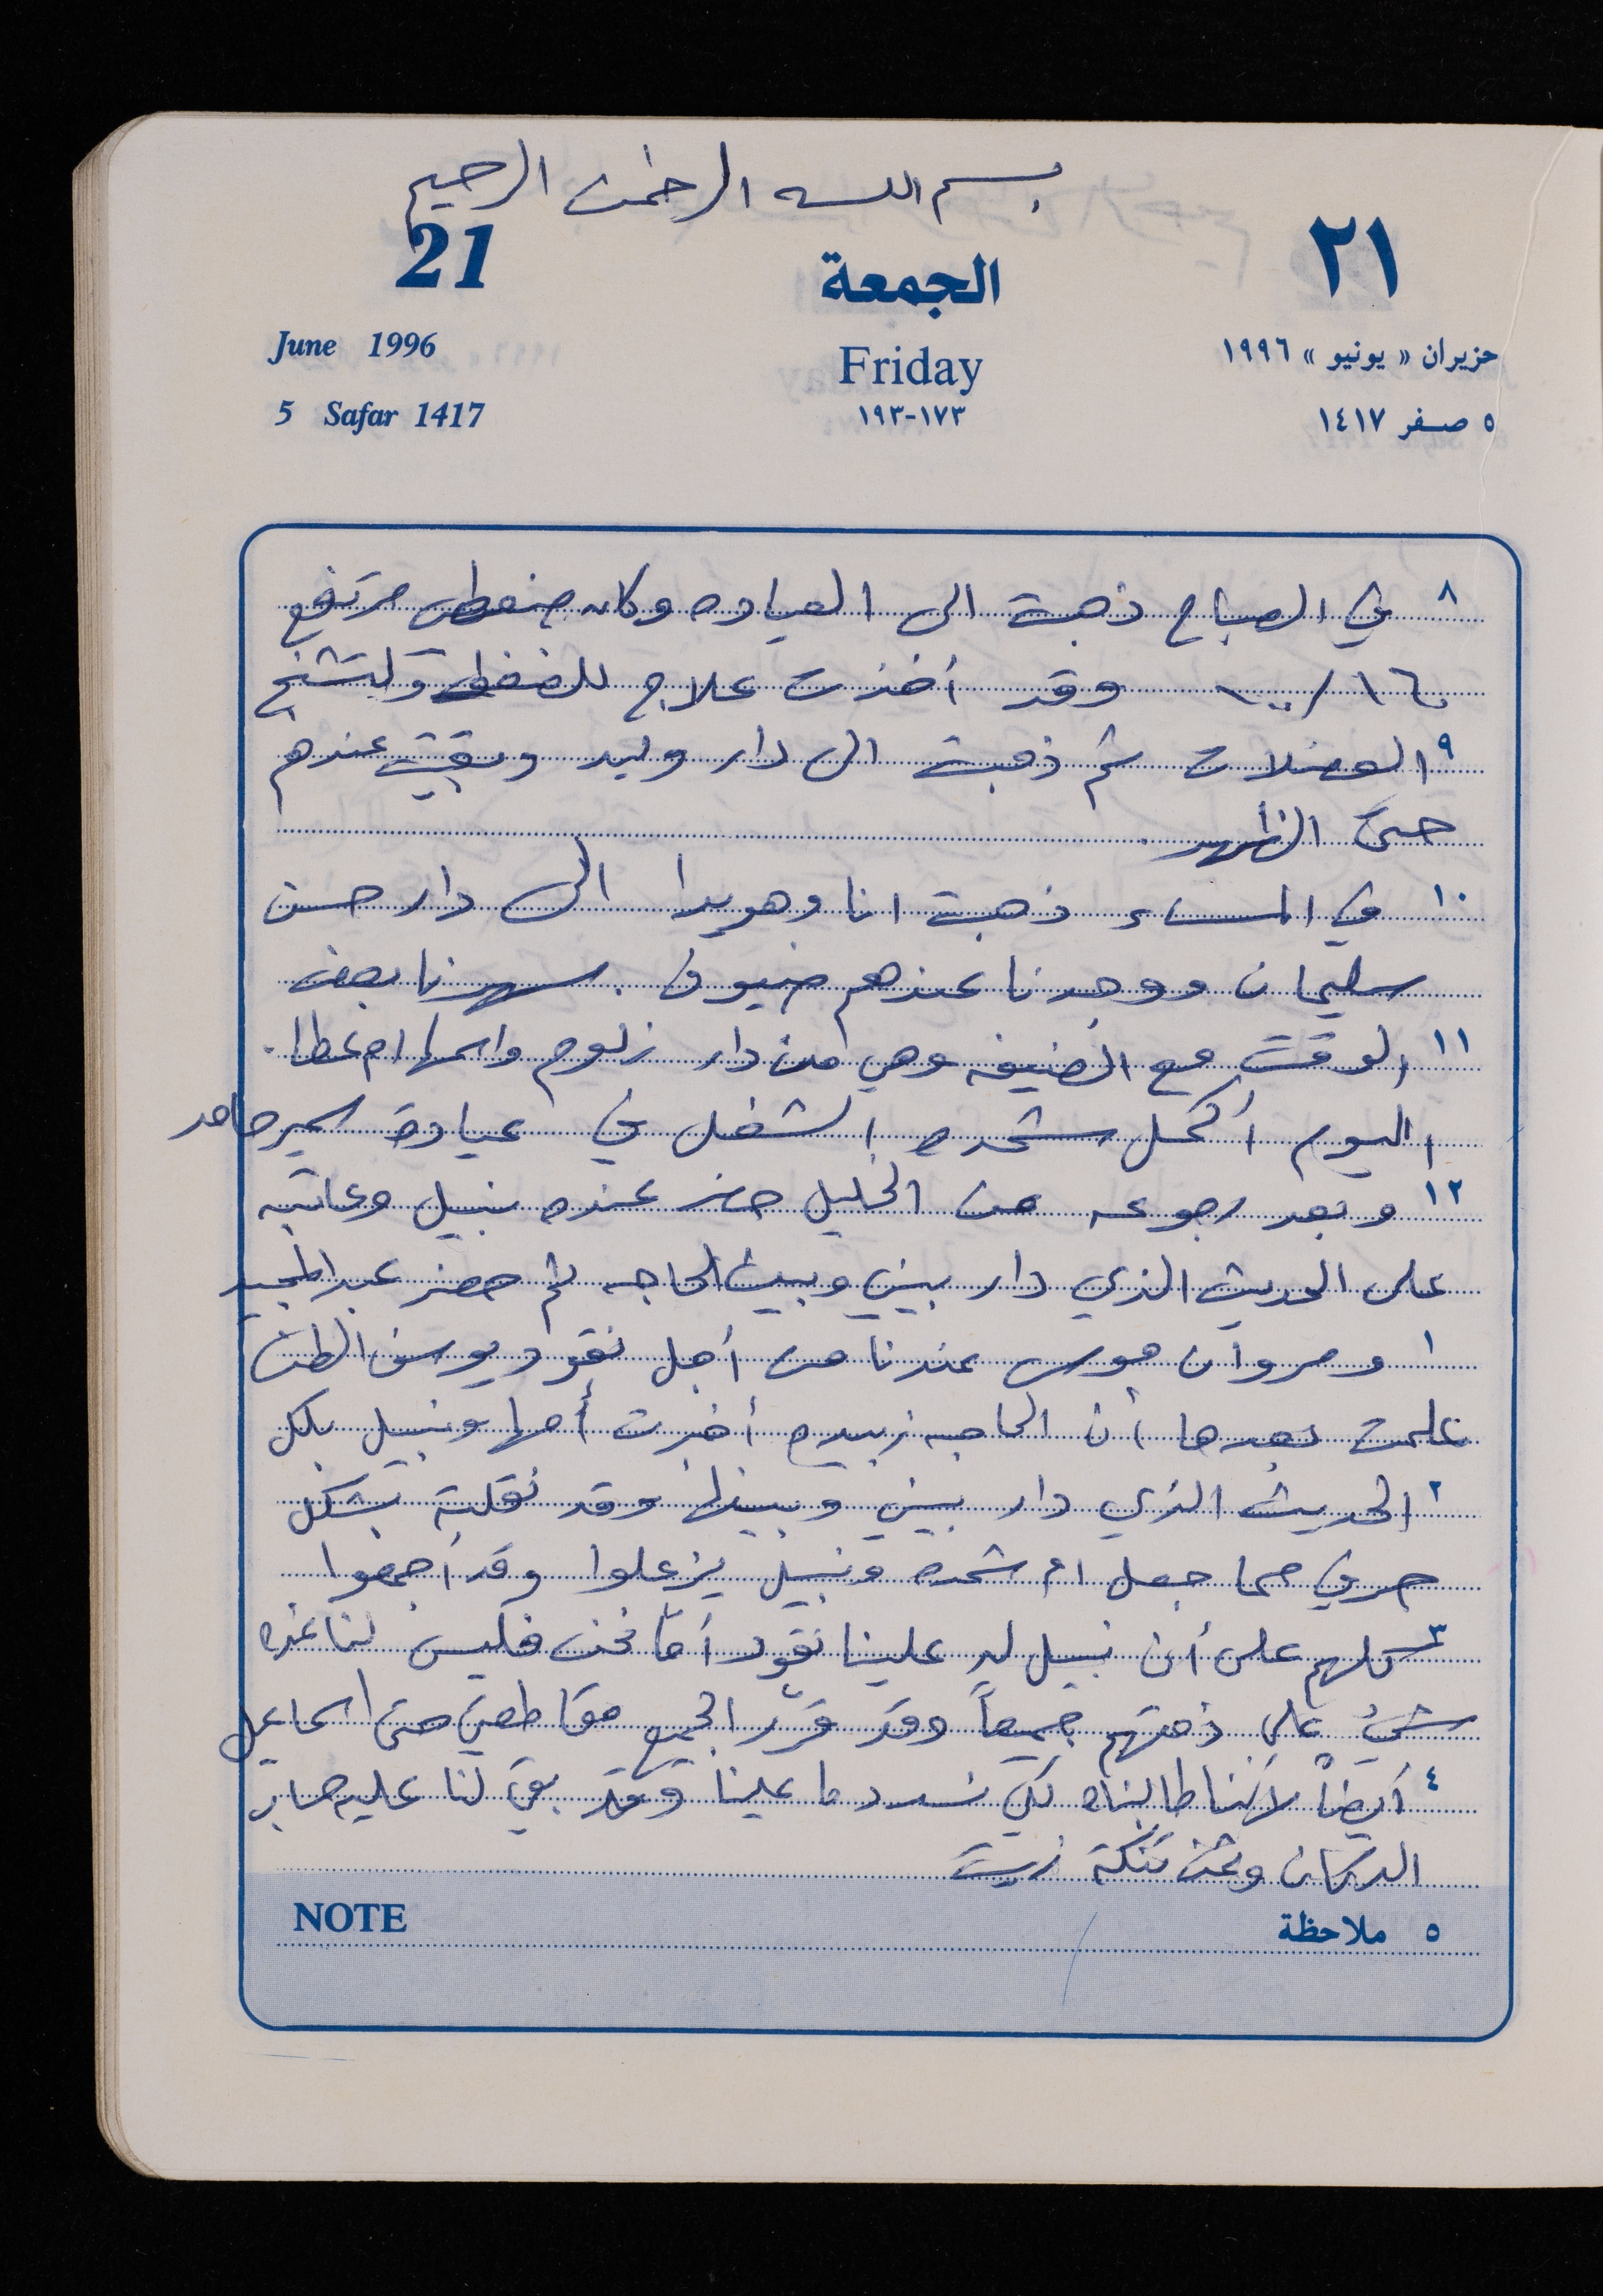 بسم الله الرحمن الرحيم
21 الجمعة ٢١
June 1996 Friday حزيران « يونيو » ١٩٩٦
5 Safar 1417 ١٧٣-١٩٣ ٥ صفر ١٤١٧
٨ في الصباح ذهبت الى العياده وكان ضغطي مرتفع
١٦٠/١٠٠ وقد أخذت علاج للضغط ولتشنج
٩ العضلات ثم ذهبت الى دار وليد وبقيت عندهم
حتى الظهر
١٠ في المساء ذهبت انا وهويدا الى دار حسن
سليمان ووجدنا عندهم ضيوف . سهرنا بعض
١١ الوقت مع الضيفه وهي من دار زلوم واسمها ام عطا .
اليوم أكمل شحده الشغل في عيادة سمير حامد
١٢ وبعد رجوعه من الخليل حضر عنده نبيل وعاتبه
على الحديث الذي دار بيني وبين الحاجه ثم حضر عبد المجيد
١ ومروان موسى عندنا من أجل نقود يوسف
علمت بعدها أن الحاجه زبيده أخبرت أمها ونبيل بكل
٢ الحديث الذي دار بيني وبينها وقد نقلته بشكل
حرفي مما جعل ام شحده ونبيل يزعلوا وقد أجمعوا
٣ كلهم على أن نبيل له علينا نقود أما نحن فليس لنا عنده
شيء على ذمتهم جميعاً وقد قرّر الجميع مقاطعتي حتى اسماعيل
٤ أيضاً لأننا طالبناه لكي نسدد ما علينا وقد بقي لنا عليه حساب
الدكان وثمن تنكة زيت
NOTE ٥ ملاحظة